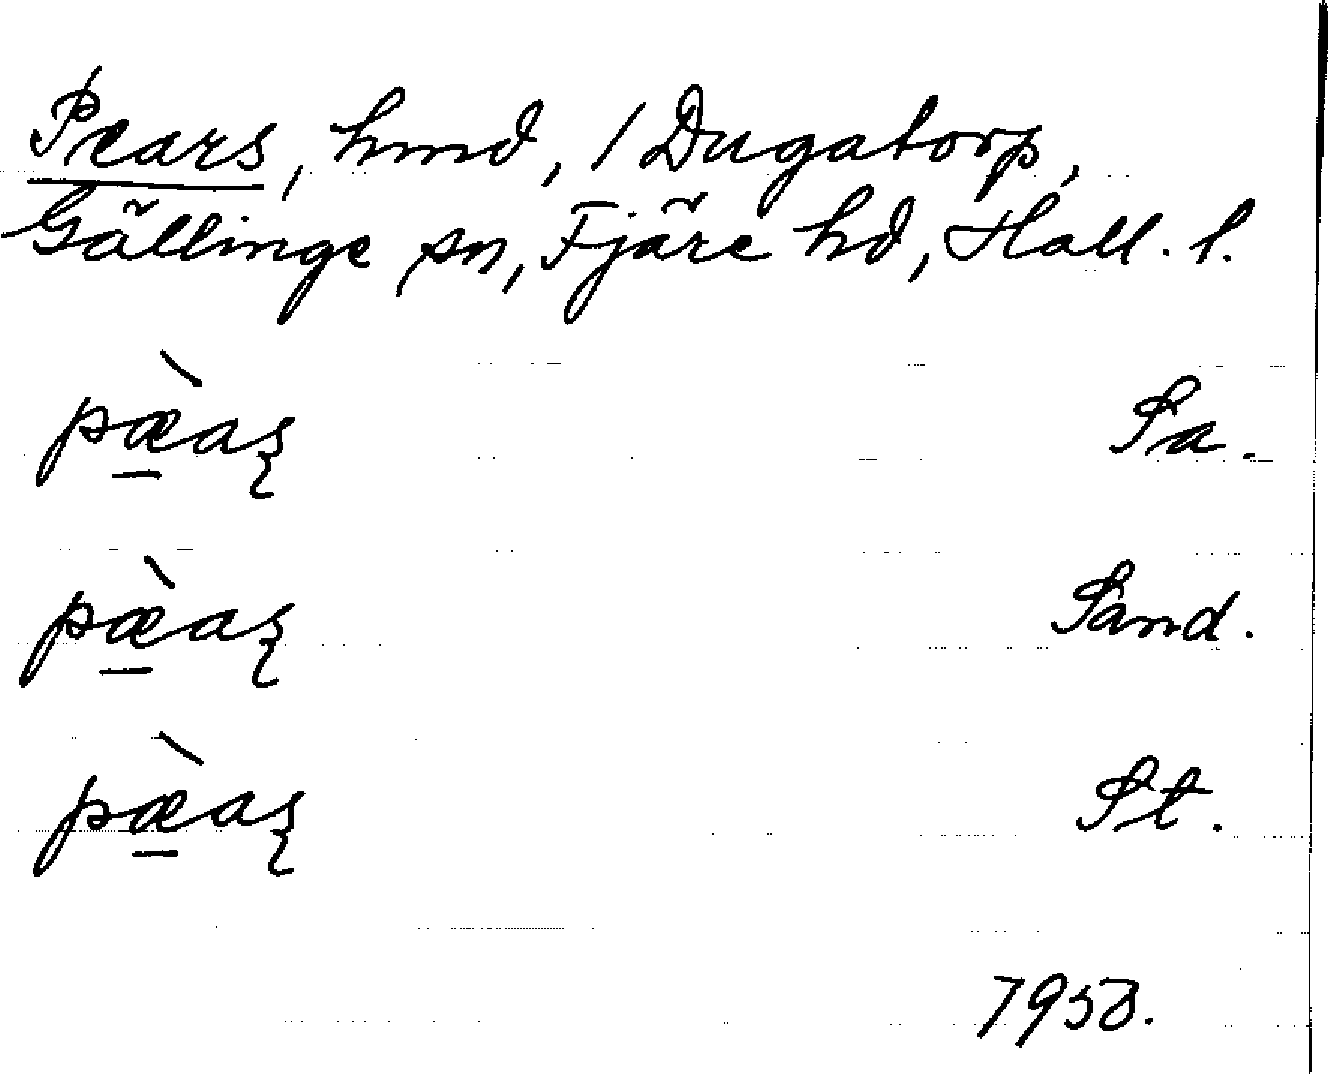 Pears, hmd, / Dugatorp,
Gällinge sn, Fjäre hd, Hall. l.
pæ̠̀aʂ Sa.
pæ̠̀aʂ Sand.
pæ̠̀aʂ St.
1958.